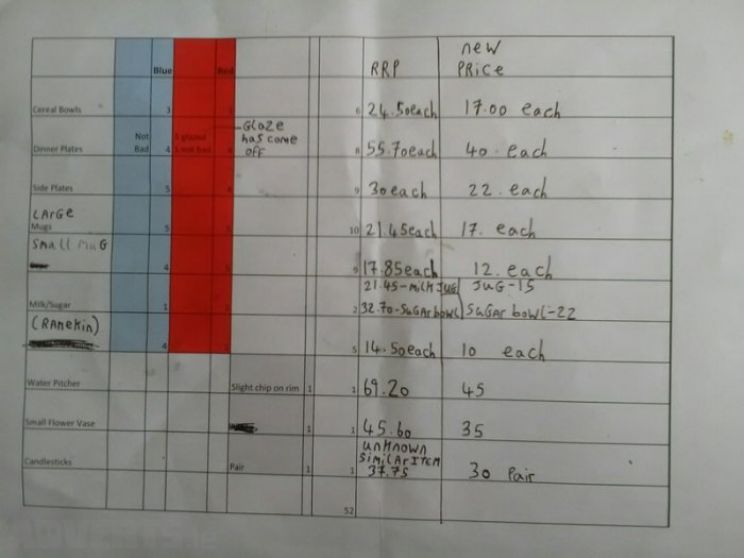 Blue Red RRP new PRice
Cereal Bowls 3 3 6 24.50each 17.00 each
GLaze has come off
Dinner Plates Not Bad 4 8 55.70each 40. each
Side Plates 5 4 9 30each 22. each
LArGe Mugs 5 10 21.45each 17. each
Small MuG 4 9 17.85each 12. each
Milk/Sugar 1 2 21.45-milk Jug JuG-15
32.70-SuGArbowl SuGAr bowl-22
(RAMeKin) 4 5 14.50each 10 each
Water Pitcher Slight chip on rim 1 1 69.20 45
Small Flower Vase 1 1 45.60 35
Candlesticks Pair 1 1 unKnown SimilAr ITEM 37.75 30 Pair
52